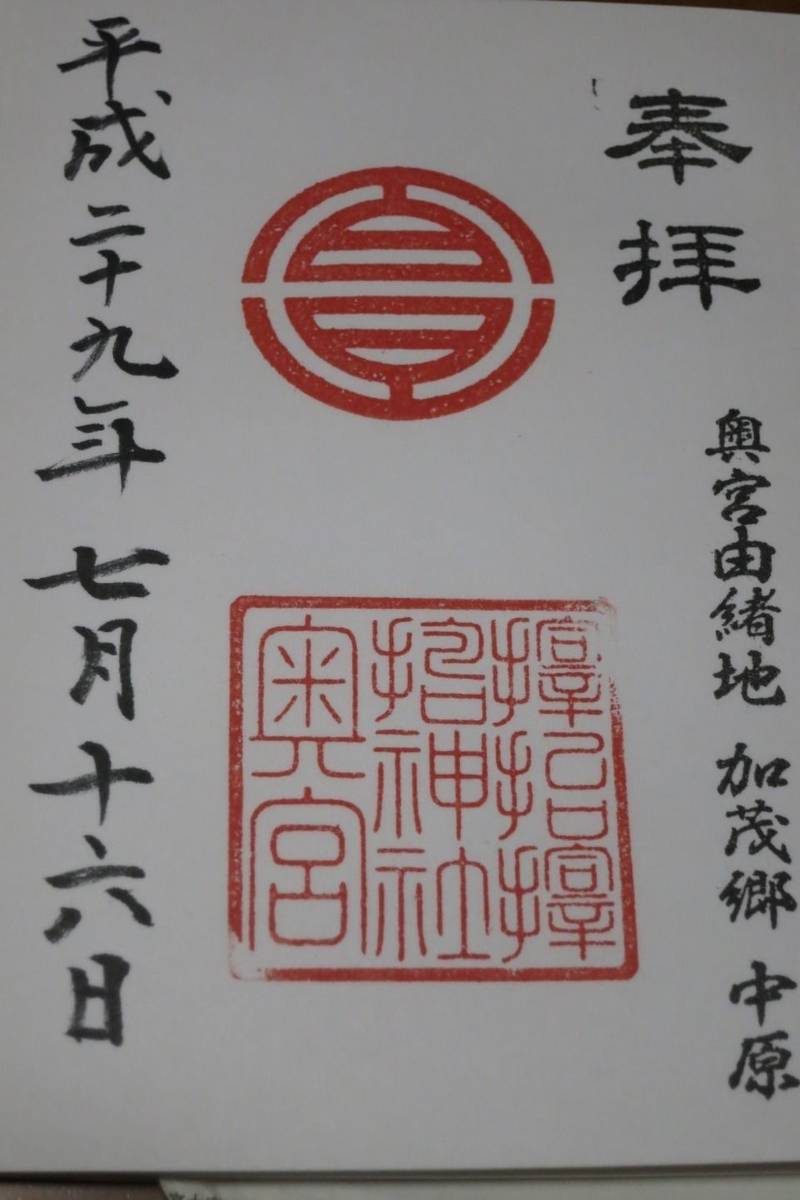 奉拝
奥宮由緒地 加茂郷 中原
招
招神社
奥宮
平成二十九年 七月十六日